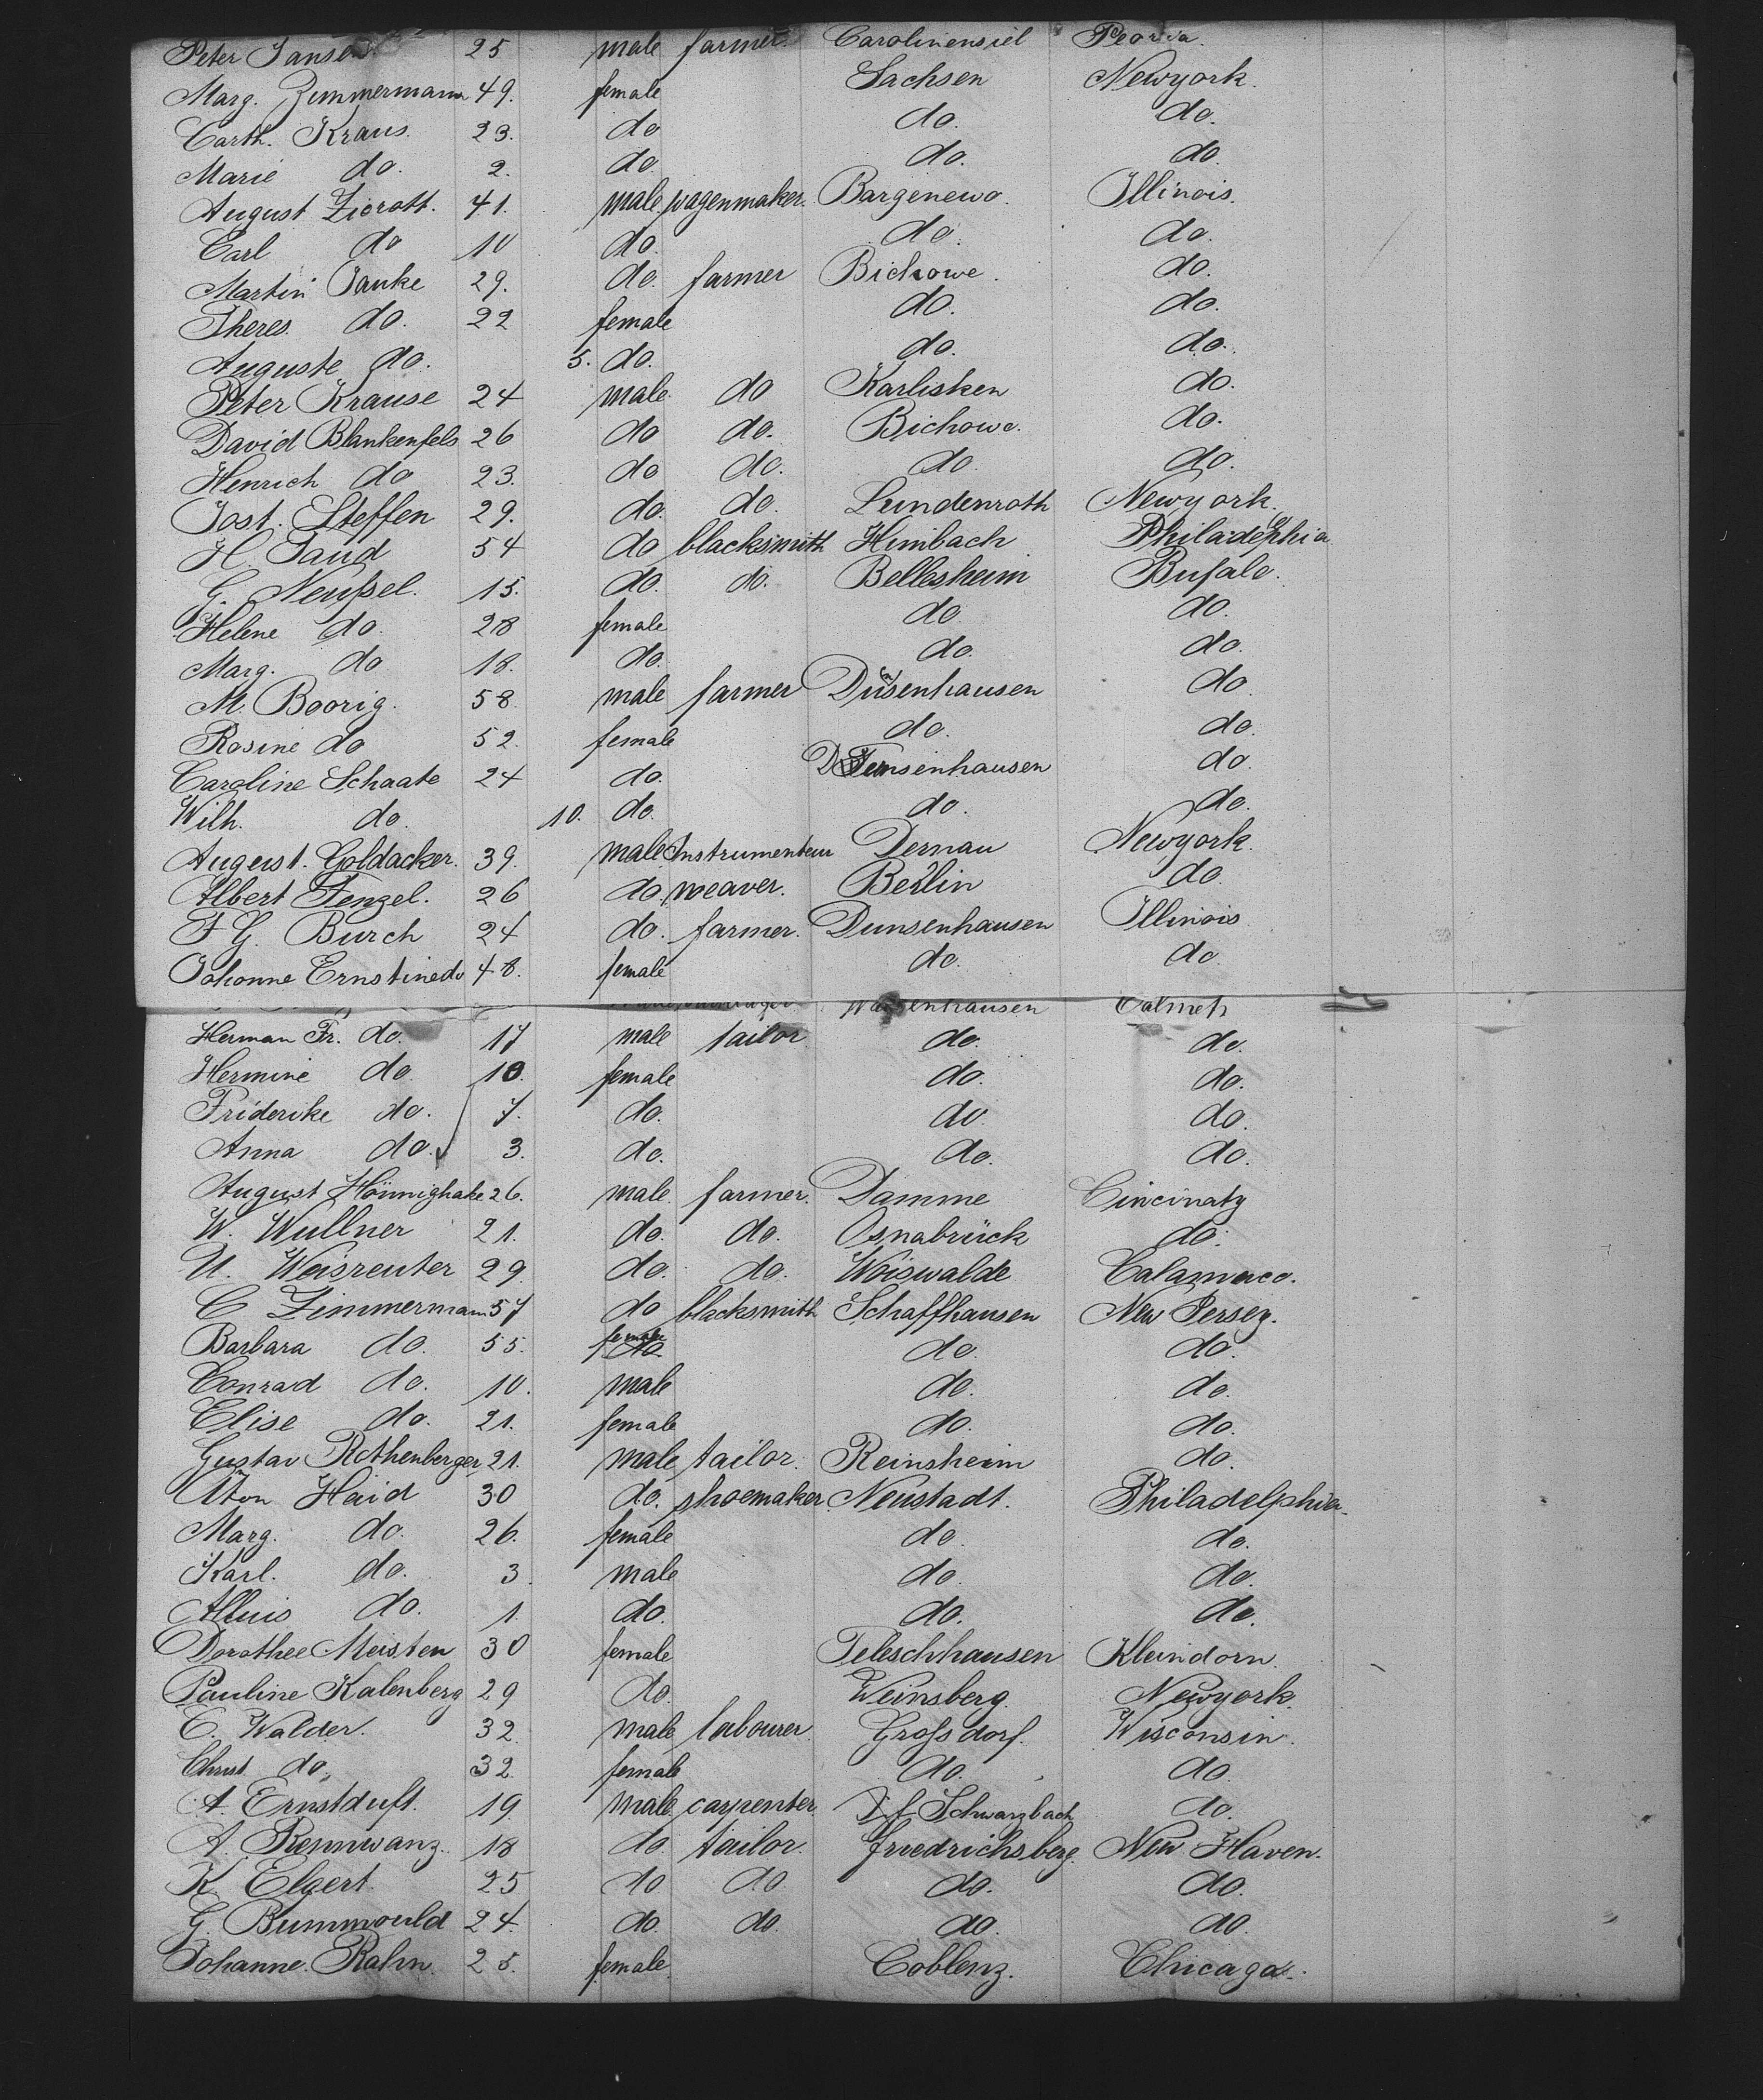 Peter Jansen 25 male farmer Carolinensiel Peoria.
Marg. Zimmermann 49. female Sachsen Newyork.
Carth. Kraus. 23. do do. do.
Marie do. 2. do. do. do.
August Zierott. 41. male. wagenmaker. Bargenewo. Illinois.
Carl do 10 do. do. do.
Martin Janke 29. do. farmer Bichowe. do.
Theres. do. 22 female do. do.
Auguste do. 5. do. do. do.
Peter Krause 24 male. do Karlisken do.
David Blankenfels 26 do do. Bichowo. do.
Henrich do 23. do do. do. do.
Jost. Steffen 29. do. do. Lundenroth Newyork.
H. Taud 54 do blacksmith Himbach Philadelphia
G. Neußel. 15. do. do. Bellesheim Bufalo.
Helene do. 28 female do do.
Marg. do 18. do. do. do.
M. Boorig. 58. male farmer Dünsenhausen do.
Rosine do 52. female do. do.
Caroline Schaate 24 do. Dunsenhausen do.
Wilh. do. 10. do. do. do.
August. Goldacker. 39. male Instrumenteur Dernau Newyork.
Albert Fenzel. 26 do. weaver. Berlin do.
F G. Burch 24 do. farmer. Dunsenhausen Illinois
Johonne Ernstine do 48. female do. do
enhausen Calmeh
Herman Fr. do. 17 male tailor do. do.
Hermine do. 10. female do. do.
Friderike do. 7. do. do do.
Anna do. 3. do. do. do.
August Hönnighake 26. male. farmer. Damme Cincinaty
W. Wullner 21. do. do. Osnabrück do.
U. Weisreuter 29. do. do. Woiswalde
C Zimmermann 57 do blacksmith Schaffhausen New Jersey.
Barbara do. 55. female do. do.
Conrad do. 10. male do. do.
Elise do. 21. female do. do.
Gustav Rothenberger 21. male tailor. Reinsheim do.
Aton Haid 30 do. shoemaker Neustadt. Philadelphia.
Marg. do. 26. female do. do.
Karl. do. 3. male do. do.
Alluis do. 1. do. do. do.
Dorothee Meisten 30 female Teleschhausen Kleindorn.
Pauline Kalenberg 29 do. Weinsberg. Newyork.
C. Walder. 32. male labourer Großdorf. Wisconsin.
Christ do. 32. female do. do
A. Ernstduft. 19. male. carpenter. Schwarzbach do.
A. Rennwanz. 18 do. tailor. friedrichsberg. New Haven.
K. Elgert. 25 do. do. do. do.
G. Bummould 24. do. do. do. do.
Johanne. Rahn. 25. female. Coblenz. Chicago.